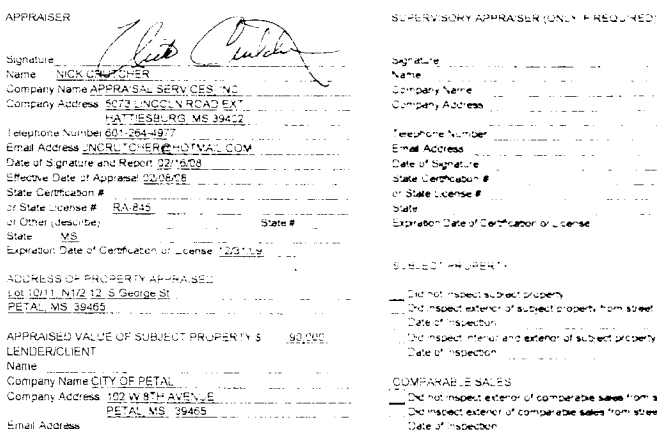 APPRAISER
Signature Nick Crutcher
Name NICK CRUTCHER
Company Name APPRAISAL SERVICES, INC
Company Address 5073 LINCOLN ROAD EXT
HATTIESBURG, MS 39402
Telephone Number 601-264-4977
Email Address JNCRUTCHER@HOTMAIL.COM
Date of Signature and Report 02/16/08
Effective Date of Appraisal 02/06/08
State Certification #
or State License # RA-845
or Other (describe) State #
State MS
Expiration Date of Certification or License 12/31/09
ADDRESS OF PROPERTY APPRAISED
Lot 10/11, N1/2 12, S George St
PETAL, MS 39465
APPRAISED VALUE OF SUBJECT PROPERTY $ 90,000
LENDER/CLIENT
Name
Company Name CITY OF PETAL
Company Address 102 W 8TH AVENUE
PETAL, MS 39465
Email Address
SUPERVISORY APPRAISER (ONLY IF REQUIRED)
Signature
Name
Company Name
Company Address
Telephone Number
Email Address
Date of Signature
State Certification #
or State License #
State
Expiration Date of Certification or License
SUBJECT PROPERTY
Did not inspect subject property
Did inspect exterior of subject property from street
Date of Inspection
Did inspect interior and exterior of subject property
Date of Inspection
COMPARABLE SALES
Did not inspect exterior of comparable sales from s
Did inspect exterior of comparable sales from stree
Date of Inspection